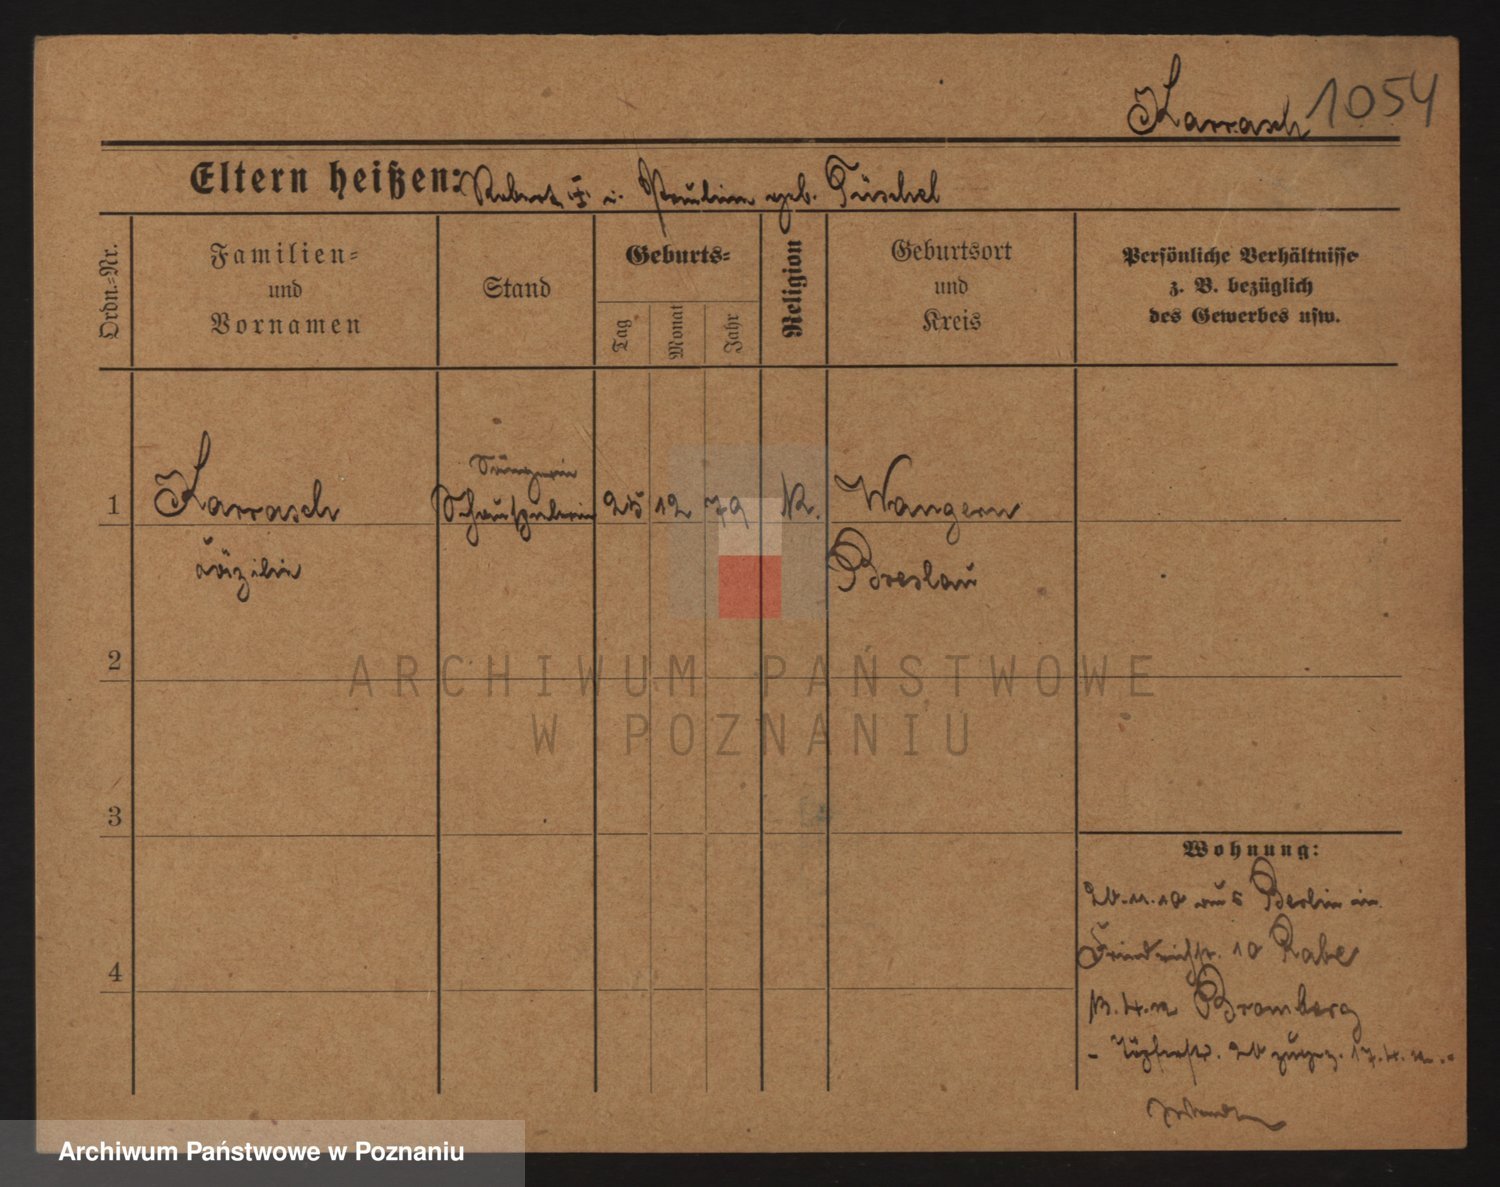 Karrasch 1054
Eltern heißen: Robert † u. Pauline geb. Tüschel
Ordn.-Nr.
Familien-
und
Vornamen
Stand
Geburts-
Tag
Monat
Jahr
Religion
Geburtsort
und
Kreis
Persönliche Verhältnisse
z. B. bezüglich
des Gewerbes usw.
Sängerin
1 Karrasch Schauspielerin 25 12 79 K. Wangern
Cäzilie Breslau
2
ARCHIWUM PAŃSTWOWE
W POZNANIU
3
Wohnung:
aus Berlin in
Friedrichstr. 10 Rabe
Bromberg
17.4.
4
Archiwum Państwowe w Poznaniu